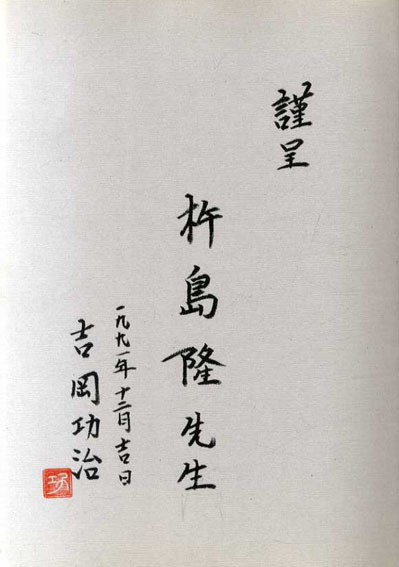 謹呈
杵島隆先生
一九九一年十二月吉日
吉岡功治
功